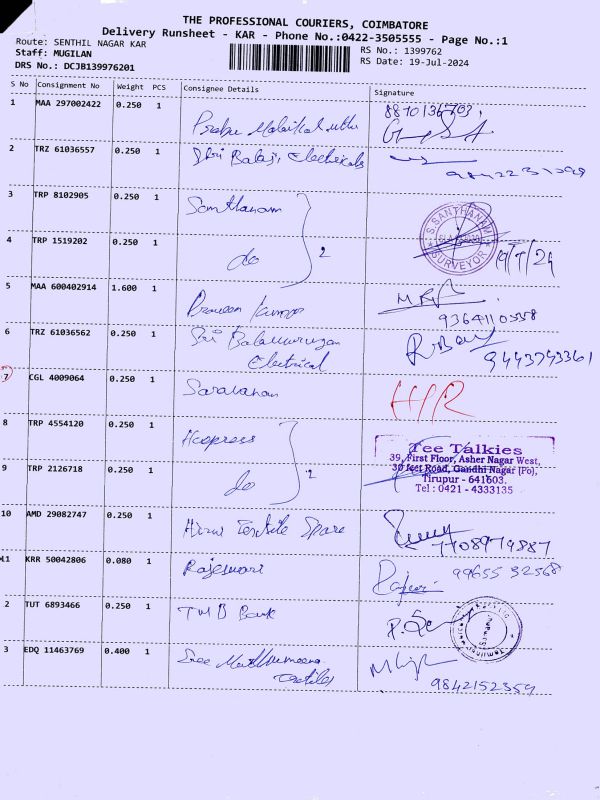 THE PROFESSIONAL COURIERS, COIMBATORE
Delivery Runsheet - KAR - Phone No.:0422-3505555 - Page No.:1
Route: SENTHIL NAGAR KAR RS No.: 1399762
Staff: MUGILAN RS Date: 19-Jul-2024
DRS No.: DCJB139976201
S No Consignment No Weight PCS Consignee Details Signature
1 MAA 297002422 0.250 1
2 TRZ 61036557 0.250 1 Shri Balaji Electricals
3 TRP 8102905 0.250 1 Santhanam 2 S.SANTHANAM SURVEYOR
4 TRP 1519202 0.250 1 do 19/7/24
5 MAA 600402914 1.600 1 Praveen Kumar
9364110558
6 TRZ 61036562 0.250 1 Sri Balamurugan
Electrical 9443743361
7 CGL 4009064 0.250 1 Saravanan
8 TRP 4554120 0.250 1 2 Tee Talkies
39, First Floor, Asher Nagar West,
30 feet Road, Gandhi Nagar (Po),
9 TRP 2126718 0.250 1 do Tirupur - 641603.
Tel : 0421 - 4333135
10 AMD 29082747 0.250 1 Textile Spare
7708979887
11 KRR 50042806 0.080 1 Rajeswari 99655 32568
2 TUT 6893466 0.250 1 TMB Bank
3 EDQ 11463769 0.400 1 Sree
Textiles 9842152359